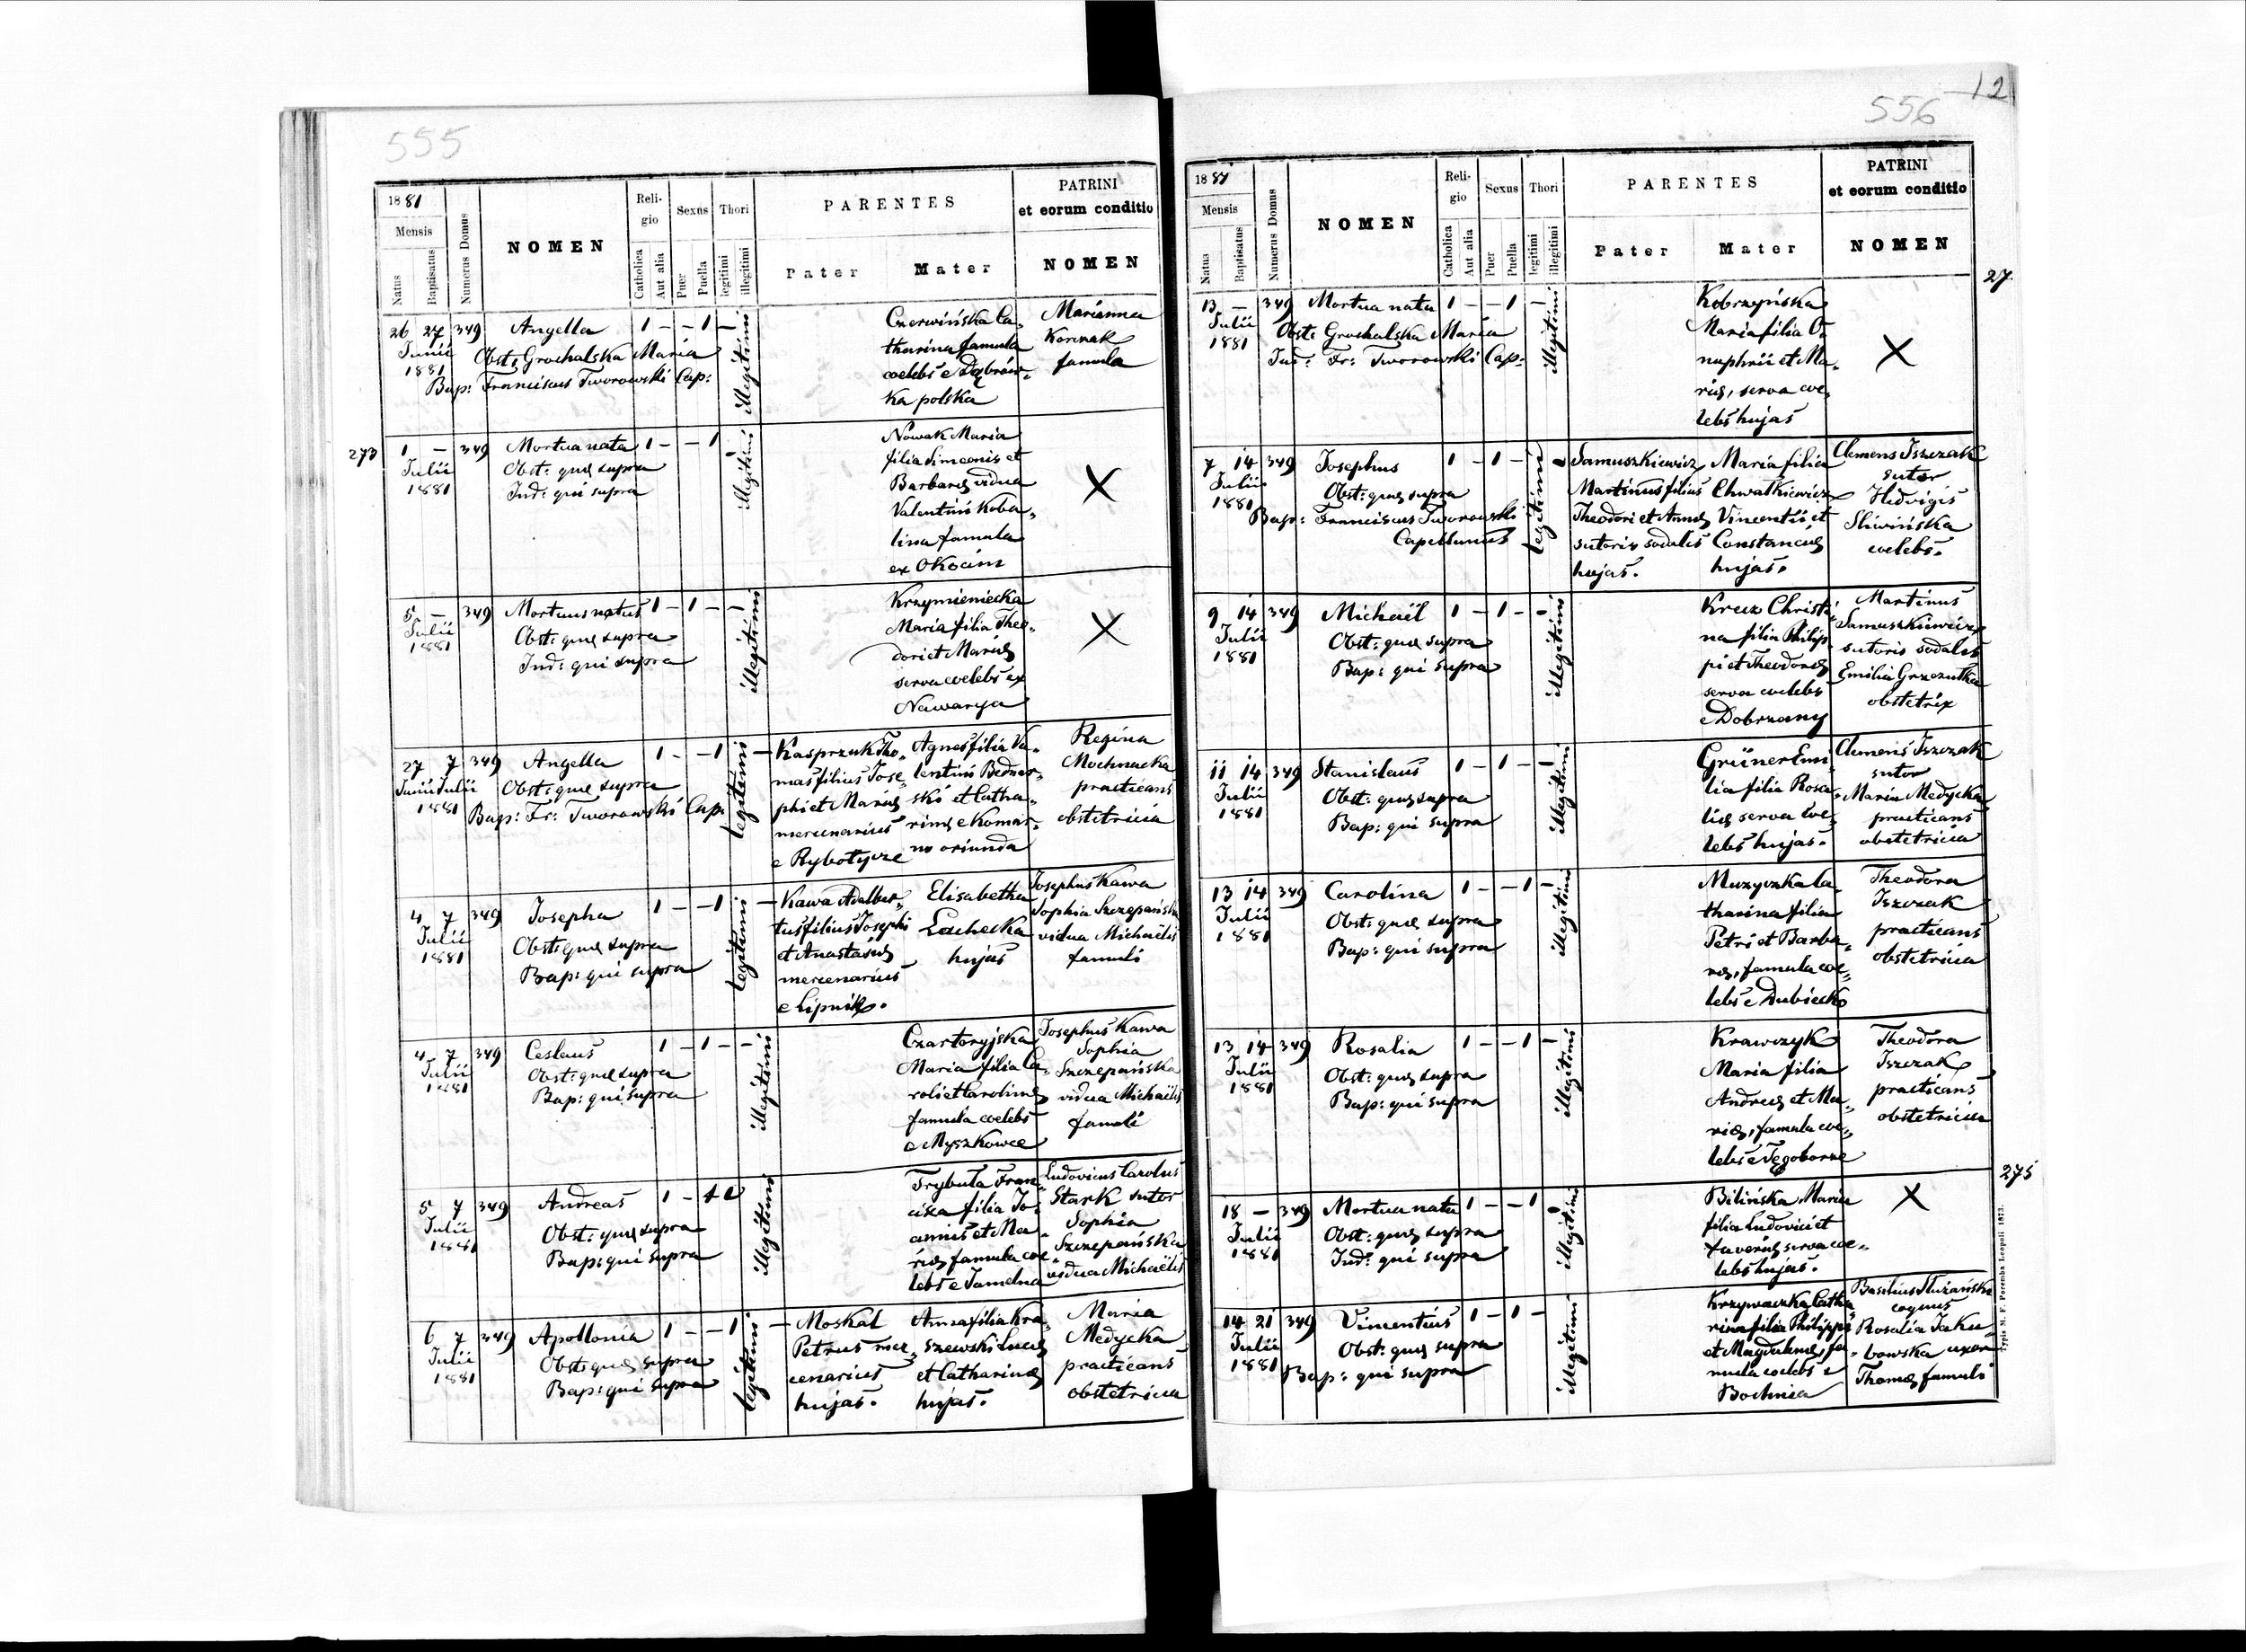 555
1881
Mensis
Natus
Bapisatus
Numerus Domus
NOMEN
Reli-
gio
Catholica
Aut alia
Sexus
Puer
Puella
Thori
legitimi
illegitimi
PARENTES
Pater
Mater
PATRINI
et eorum conditio
NOMEN
26 27 349 Angella 1 - - 1 -
Junii
1881
Obst: Grochalska Maria
Bap: Franciscus Tworowski Cap:
illegitimi
Czerwińska Ca-
tharina famula
coelebs e Dąbrów-
ka polska
Marianna
Korzak
famula
273
1 - 349 Mortua nata 1 - - 1 -
Julii
1881
Obst: quæ supra
Ind: qui supra
illegitimi
Nowak Maria
filia Simeonis et
Barbaræ vidua
Valentini Koba-
lina famula
ex Okocim
X
5 - 349 Mortuus natus 1 - 1 - -
Julii
1881
Obst: quæ supra
Ind: qui supra
illegitimi
Krzymieniecka
Maria filia Theo-
dori et Mariæ
serva coelebs ex
Nawarya
X
27 7 349 Angella 1 - - 1 -
Junii Julii
1881
Obst: quæ supra
Bap: Fr: Tworowski Cap.
legitimi
Kasprzak Tho-
mas filius Jose-
phi et Mariæ
mercenarius
e Rybotycze
Agnes filia Va-
lentini Bednar-
ski et Catha-
rinæ e Komar-
no oriunda
Regina
Mochnacka
practicans
obstetricia
4 7 349 Josepha 1 - - 1 -
Julii
1881
Obst: quæ supra
Bap: qui supra
legitimi
Kawa Adalber-
tus filius Josephi
et Anastasiæ
mercenarius
e Lipnik.
Elisabetha
Lachecka
hujas
Josephus Kawa
Sophia Szczepańska
vidua Michaëlis
famuli
4 7 349 Ceslaus 1 - 1 - -
Julii
1881
Obst: quæ supra
Bap: qui supra
illegitimi
Czartoryjska
Maria filia Ca-
roli et Carolinæ
famula coelebs
e Myszkowce
Josephus Kawa
Sophia
Szczepańska
vidua Michaëlis
famuli
5 7 349 Andreas 1 - 1
Julii
1881
Obst: quæ supra
Bap: qui supra
illegitimi
Trybuła Fran-
cisca filia Jo-
annis et Ma-
riæ famula coe-
lebs e Jamelna
Ludovicus Carolus
Stark sutor
Sophia
Szczepańska
vidua Michaëlis
6 7 349 Apollonia 1 - - 1 -
Julii
1881
Obst: quæ supra
Bap: qui supra
legitimi
Moskal
Petrus mer-
cenarius
hujas.
Anna filia Kra-
szewski Lucæ
et Catharinæ
hujas.
Maria
Medycka
practicans
obstetricia
556
12
1881
Mensis
Natus
Baptisatus
Numerus Domus
NOMEN
Reli-
gio
Catholica
Aut alia
Sexus
Puer
Puella
Thori
legitimi
illegitimi
PARENTES
Pater
Mater
PATRINI
et eorum conditio
NOMEN
27
13 - 349 Mortua nata 1 - - 1 -
Julii
1881
Obst: Grochalska Maria
Ind: Fr: Tworowski Cap-
illegitimi
Kobrzyńska
Maria filia O-
nuphrii et Ma-
riæ, serva coe-
lebs hujas
X
7 14 349 Josephus 1 - 1 -
Julii
1881
Obst: quæ supra
Bap: Franciscus Tworowski
Capellanus
legitimi
Samuszkiewicz
Martinus filius
Theodori et Annæ
sutoris sodalis
hujas.
Maria filia
Chwatkiewicz
Vincentii et
Constanciæ
hujas.
Clemens Iszczak
sutor
Hedvigis
Śliwińska
coelebs.
9 14 349 Michaël 1 - 1 - -
Julii
1881
Obst: quæ supra
Bap: qui supra
illegitimi
Kreiz Christi-
na filia Philip-
pi et Theodoræ
serva coelebs
e Dobrzany
Martinus
Samuszkiewicz
sutoris sodalis
Emilia Grzezułka
obstetrix
11 14 349 Stanislaus 1 - 1 - -
Julii
1881
Obst: quæ supra
Bap: qui supra
illegitimi
Grüner Emi-
lia filia Rosa-
liæ serva coe-
lebs hujas.
Clemens Iszczak
sutor
Maria Medycka
practicans
obstetricia
13 14 349 Carolina 1 - - 1 -
Julii
1881
Obst: quæ supra
Bap: qui supra
illegitimi
Muzyczka Ca-
tharina filia
Petri et Barba-
ræ, famula coe-
lebs e Dubiecko
Theodora
Iszczak
practicans
obstetricia
13 14 349 Rosalia 1 - - 1 -
Julii
1881
Obst: quæ supra
Bap: qui supra
illegitimi
Krawczyk
Maria filia
Andreæ et Ma-
riæ, famula coe-
lebs e Tęgoborze
Theodora
Iszczak
practicans
obstetricia
275
18 - 349 Mortua nata 1 - - 1 -
Julii
1881
Obst: quæ supra
Ind: qui supra
illegitimi
Bilińska Maria
filia Ludovici et
Xaveriæ serva coe-
lebs hujas.
X
14 21 349 Vincentius 1 - 1 -
Julii
1881
Obst: quæ supra
Bap: qui supra
illegitimi
Krzywaczka Catha-
rina filia Philippi
et Magdalenæ, fa-
mula coelebs e
Bochnia
Basilius
coquus
Rosalia Jaku-
bowska uxor
Thomæ famuli
Typis M. F. Poremba Leopoli 1873.